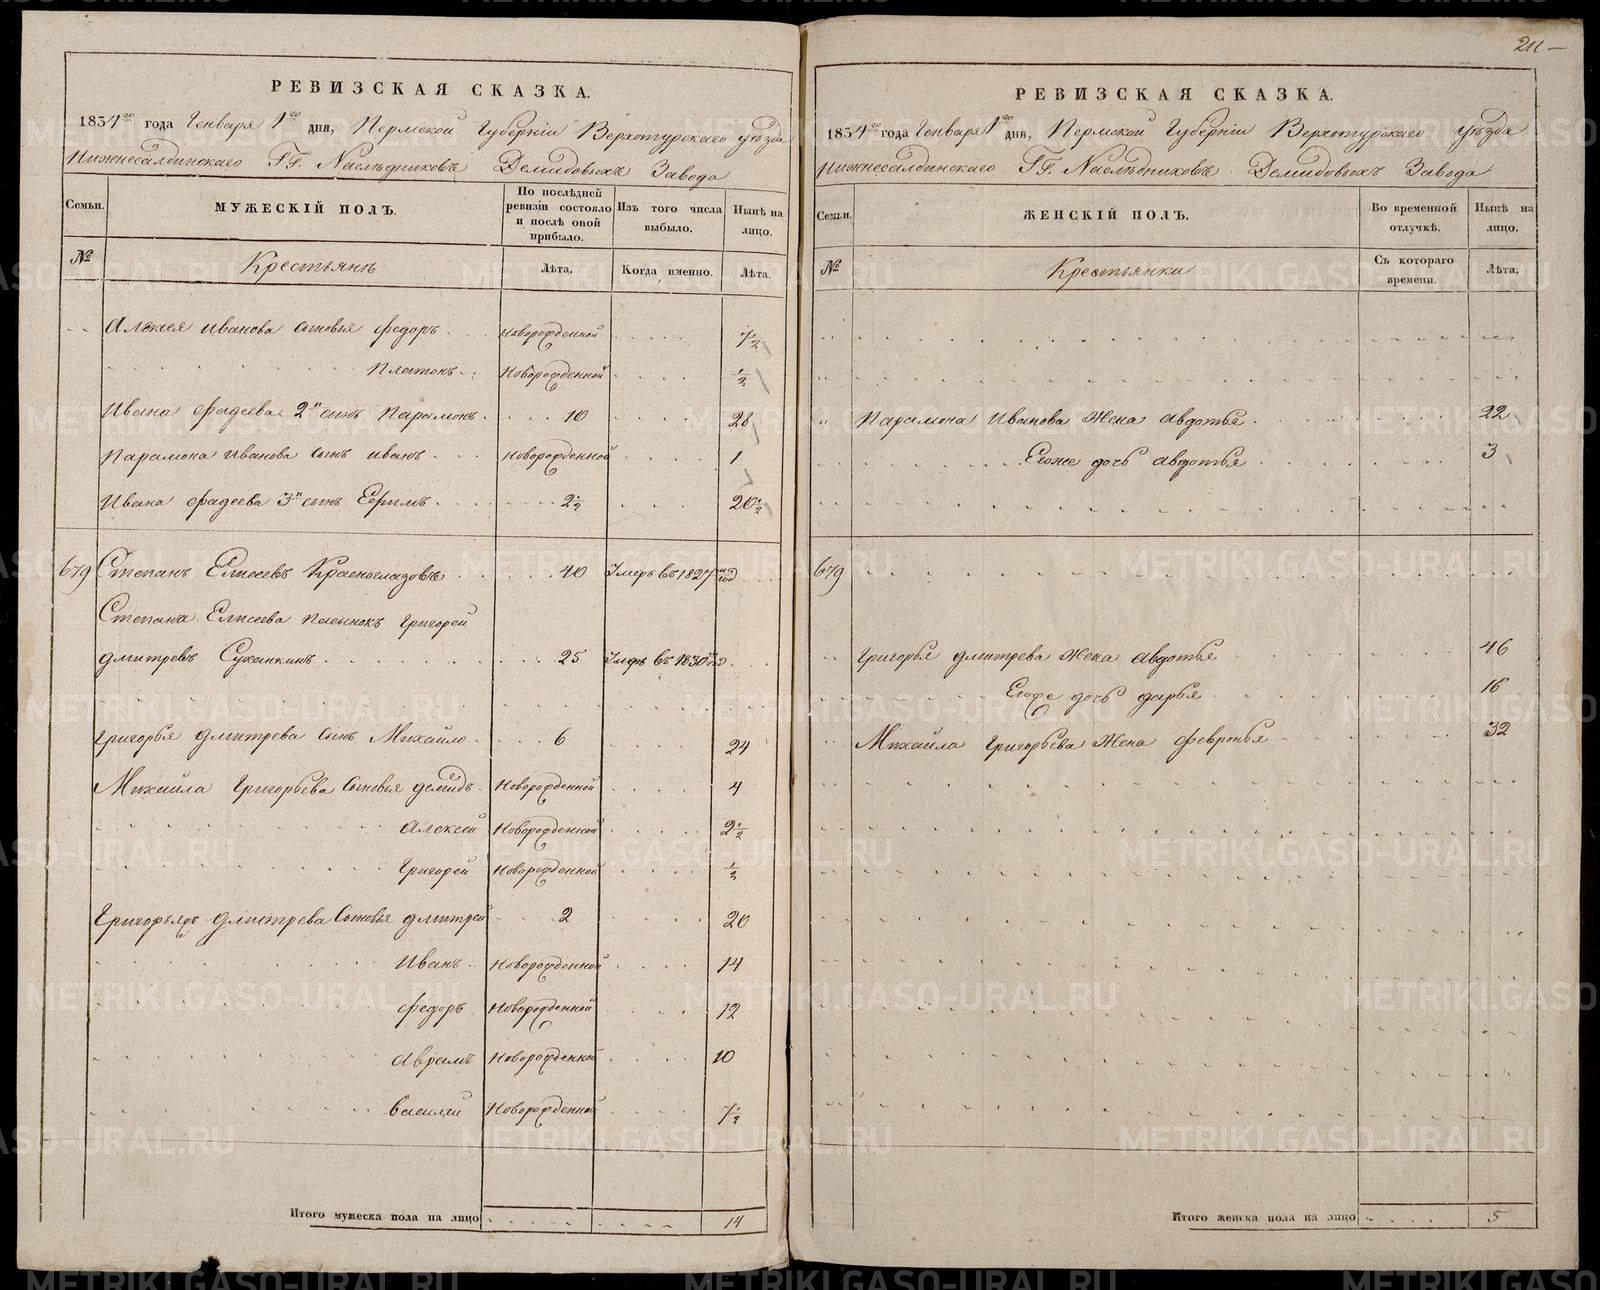 РЕВИЗСКАЯ СКАЗКА.
1834го года Генваря 1го дня, Пермской Губерніи Верхотурскаго уѣзда
Нижнесалдинскаго ГГ. Наслѣдниковъ Демидовыхъ Завода
Семьи.
МУЖЕСКІЙ ПОЛЪ.
По послѣдней ревизіи состояло и послѣ оной прибыло.
Изъ того числа выбыло.
Нынѣ на лицо.
№
Крестьянъ
Лѣта.
Когда именно.
Лѣта.
Алексея Иванова сыновья Федоръ Новорожденной 7 1/2
Платонъ Новорожденной 1/2
Ивана Фадеева 2й сынъ Парамонъ 10 28
Парамона Иванова сынъ Иванъ Новорожденной 1
Ивана Фадеева 3й сынъ Ефимъ 2 1/2 20 1/2
679 Степанъ Елисеевъ Красноглазовъ 40 Умеръ въ 1827м год
Степана Елисеева пасынокъ Григорей
Дмитревъ Суханкинъ 25 Умеръ въ 1830
Григорья Дмитрева сынъ Михайло 6 24
Михайла Григорьева Сыновья Демидъ Новорожденной 4
Алексей Новорожденной 2 1/2
Григорей Новорожденной 1/2
Дмитрева Сыновья Дмитрей 2 20
Иванъ Новорожденной 14
Федоръ Новорожденной 12
Аврамъ Новорожденной 10
Василей Новорожденной 7 1/2
Итого мужеска пола на лицо 14
211
РЕВИЗСКАЯ СКАЗКА.
1834го года Генваря 1го дня, Пермской Губерніи Верхотурскаго уѣзда
Нижнесалдинскаго ГГ. Наслѣдниковъ Демидовыхъ Завода
Семьи.
ЖЕНСКІЙ ПОЛЪ.
Во временной отлучкѣ.
Нынѣ на лицо.
№
Крестьянки
Съ котораго времени.
Лѣта.
Парамона Иванова Жена Авдотья 22
Егоже дочь Авдотья 3
679
Григорья Дмитрева Жена Авдотья 46
Егоже дочь Дарья 16
Михайла Григорьева Жена Февронья 32
Итого женска пола на лицо 5
METRIKI.GASO-URAL.RU